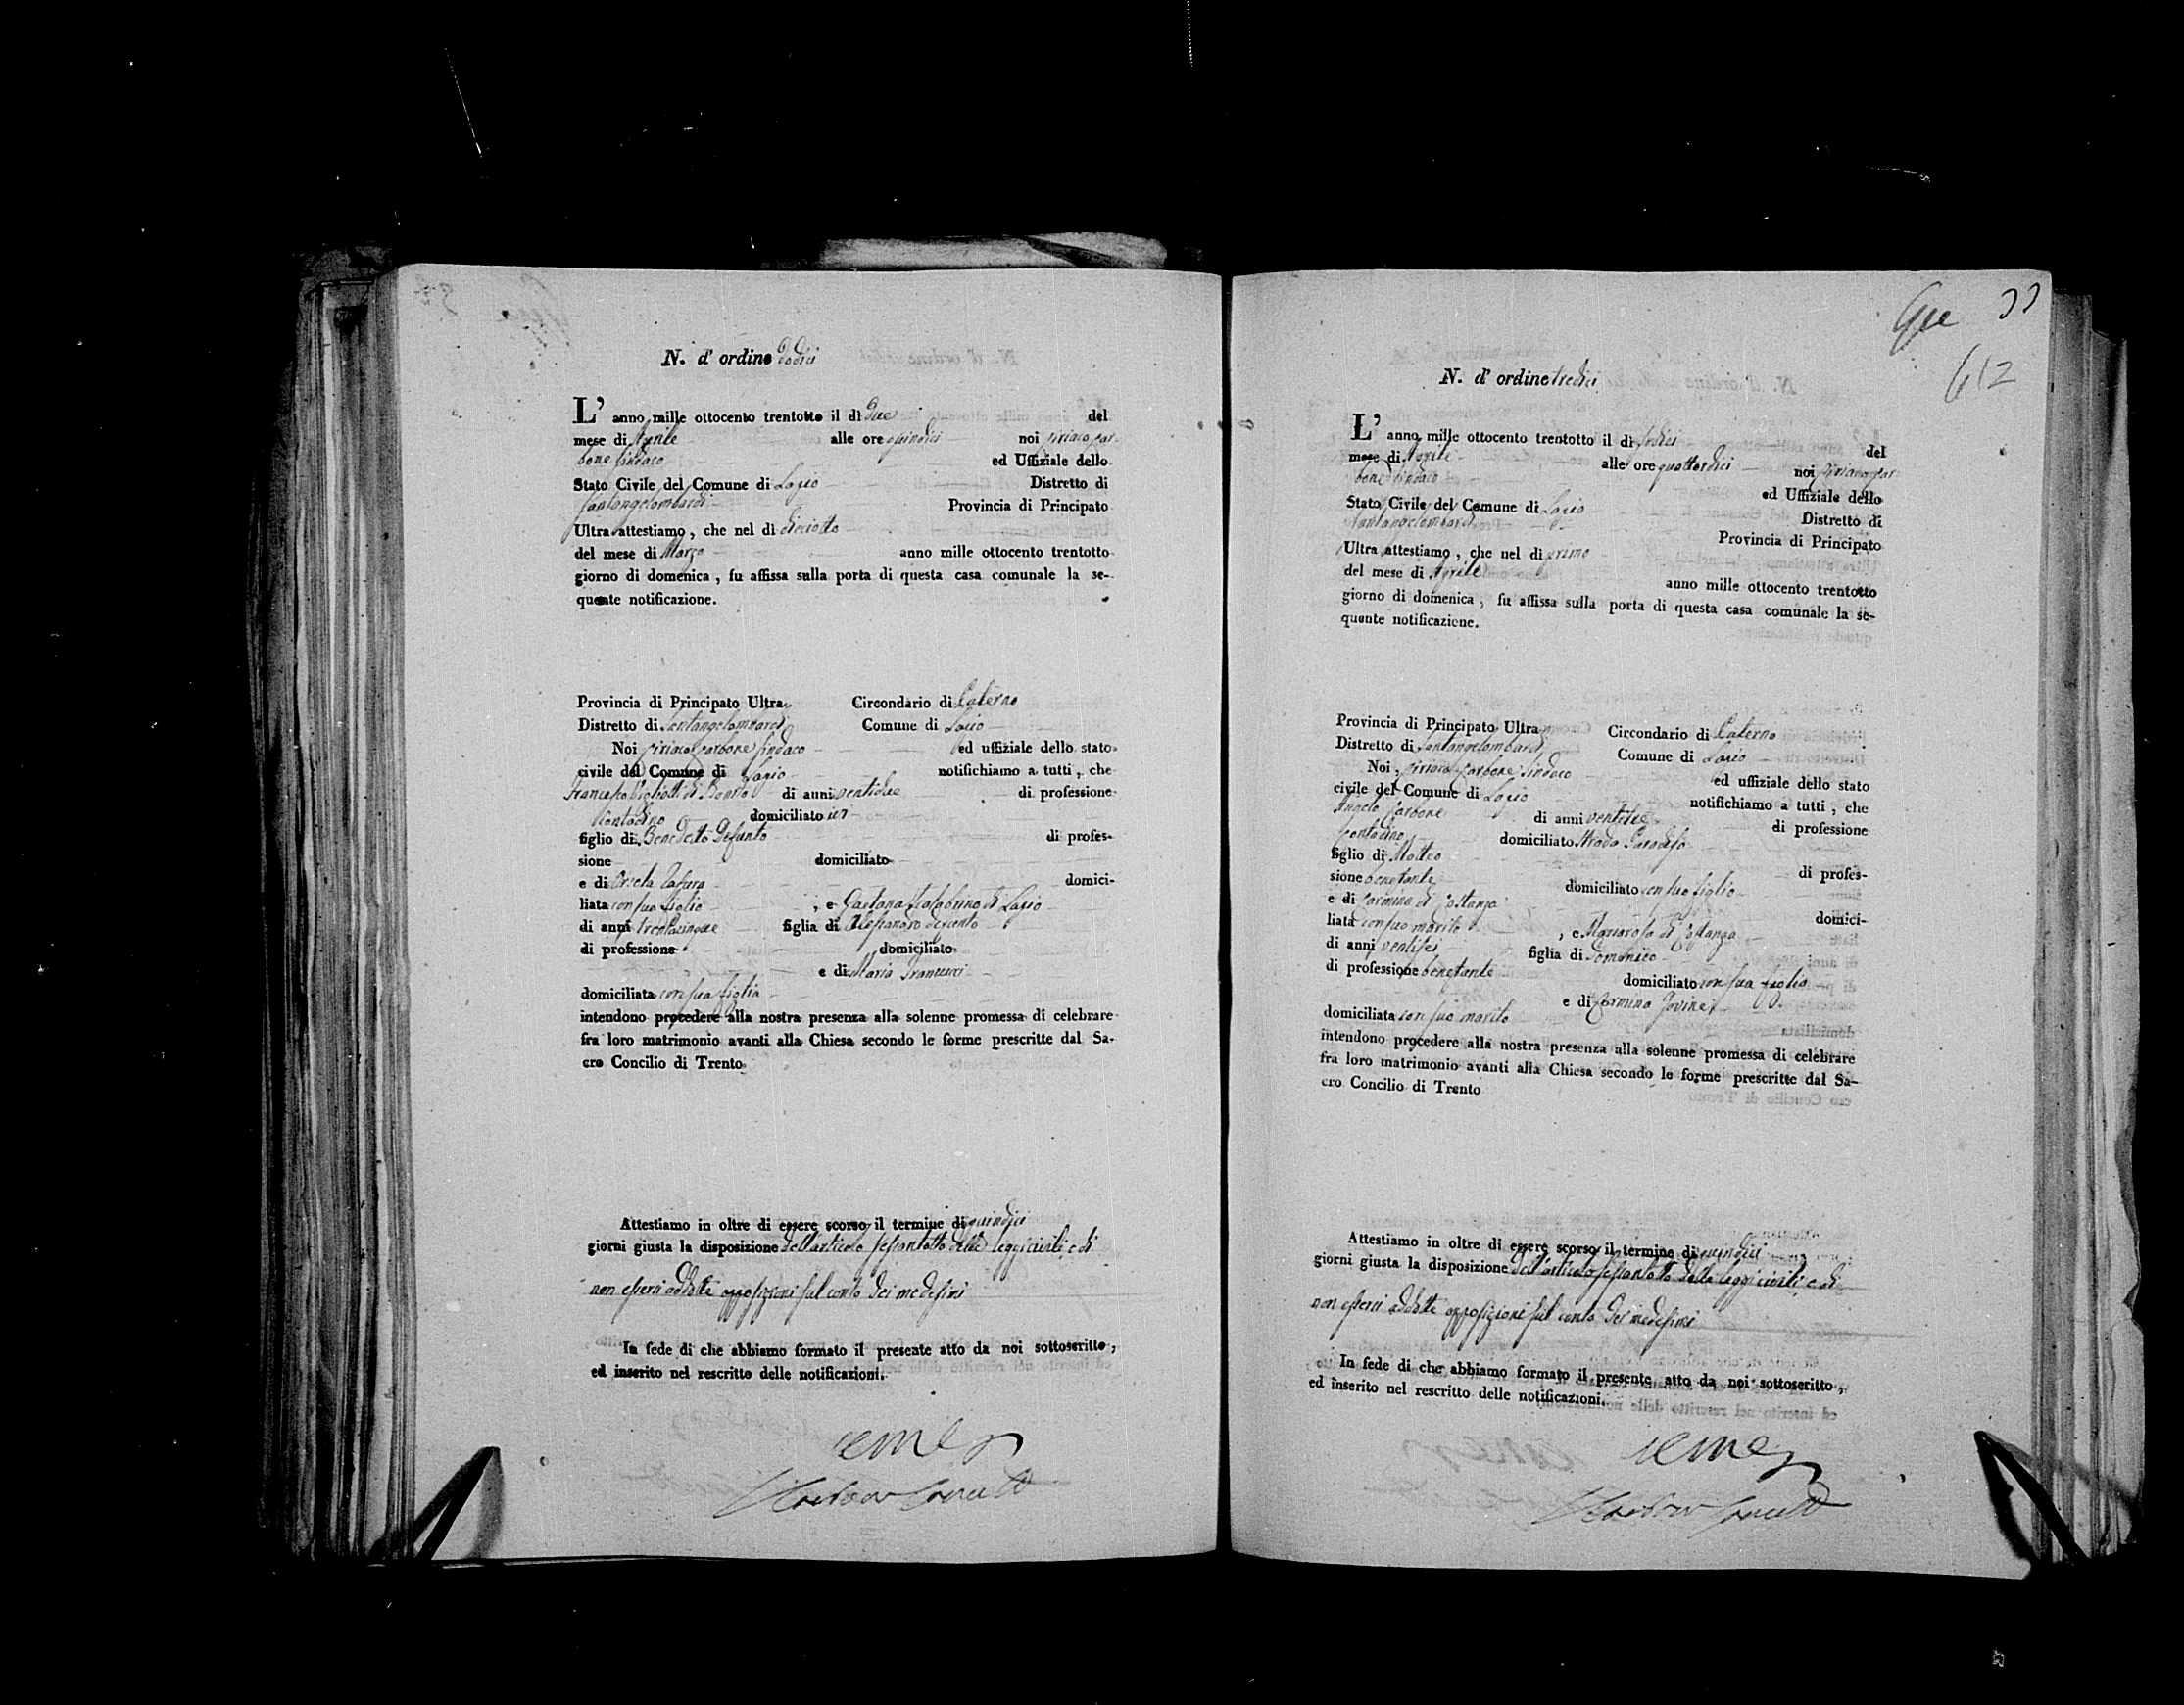 N. d' ordine dodici
L' anno mille ottocento trentotto il dì due del
mese di Aprile alle ore quindici noi Ciriaco Car-
bone Sindaco ed Uffiziale dello
Stato Civile del Comune di Lacio Distretto di
Santangelombardi Provincia di Principato
Ultra attestiamo, che nel dì diciotto
del mese di Marzo anno mille ottocento trentotto
giorno di domenica, fu affissa sulla porta di questa casa comunale la se-
quente notificazione.
Provincia di Principato Ultra Circondario di Paterno
Distretto di Santangelombardi Comune di Lacio
Noi Ciriaco Carbone Sindaco ed uffiziale dello stato
civile del Comune di Lacio notifichiamo a tutti, che
Francesco di anni ventidue di professione
Contadino domiciliato ivi
figlio di Benedetto Defunto di profes-
sione domiciliato
e di domici-
liata con suo figlio, e Gaetana di Lacio
di anni trentacinque figlia di Alessandro defunto
di professione domiciliato
e di Maria Francucci
domiciliata con sua figlia
intendono procedere alla nostra presenza alla solenne promessa di celebrare
fra loro matrimonio avanti alla Chiesa secondo le forme prescritte dal Sa-
cro Concilio di Trento
Attestiamo in oltre di essere scorso il termine di quindici
giorni giusta la disposizione dell'articolo sessantotto delle leggi civili, e di
non esserci addotte opposizioni sul conto dei medesimi
In fede di che abbiamo formato il presente atto da noi sottoscritto,
ed inserito nel rescritto delle notificazioni.
33
612
N. d' ordine tredici
L' anno mille ottocento trentotto il dì sedici del
mese di Aprile alle ore quattordici noi Ciriaco Car-
bone Sindaco ed Uffiziale dello
Stato Civile del Comune di Lacio Distretto di
Santangelombardi Provincia di Principato
Ultra attestiamo, che nel dì primo
del mese di Aprile anno mille ottocento trentotto
giorno di domenica, fu affissa sulla porta di questa casa comunale la se-
quente notificazione.
Provincia di Principato Ultra Circondario di Paterno
Distretto di Santangelombardi Comune di Lacio
Noi, Ciriaco Carbone Sindaco ed uffiziale dello stato
civile del Comune di Lacio notifichiamo a tutti, che
Angelo Carbone di anni ventitre di professione
Contadino domiciliato Strada Paradiso
figlio di Matteo di profes-
sione benestante domiciliato con suo figlio
e di Carmina di Costanza domici-
liata con suo marito, e Mariarosa di Costanza
di anni ventisei figlia di Domenico
di professione benestante domiciliato con sua figlia
e di Carmina Iovine
domiciliata con suo marito
intendono procedere alla nostra presenza alla solenne promessa di celebrare
fra loro matrimonio avanti alla Chiesa secondo le forme prescritte dal Sa-
cro Concilio di Trento
Attestiamo in oltre di essere scorso il termine di quindici
giorni giusta la disposizione dell'articolo sessantotto delle leggi civili, e di
non esserci addotte opposizioni sul conto dei medesimi
In fede di che abbiamo formato il presente atto da noi sottoscritto,
ed inserito nel rescritto delle notificazioni.